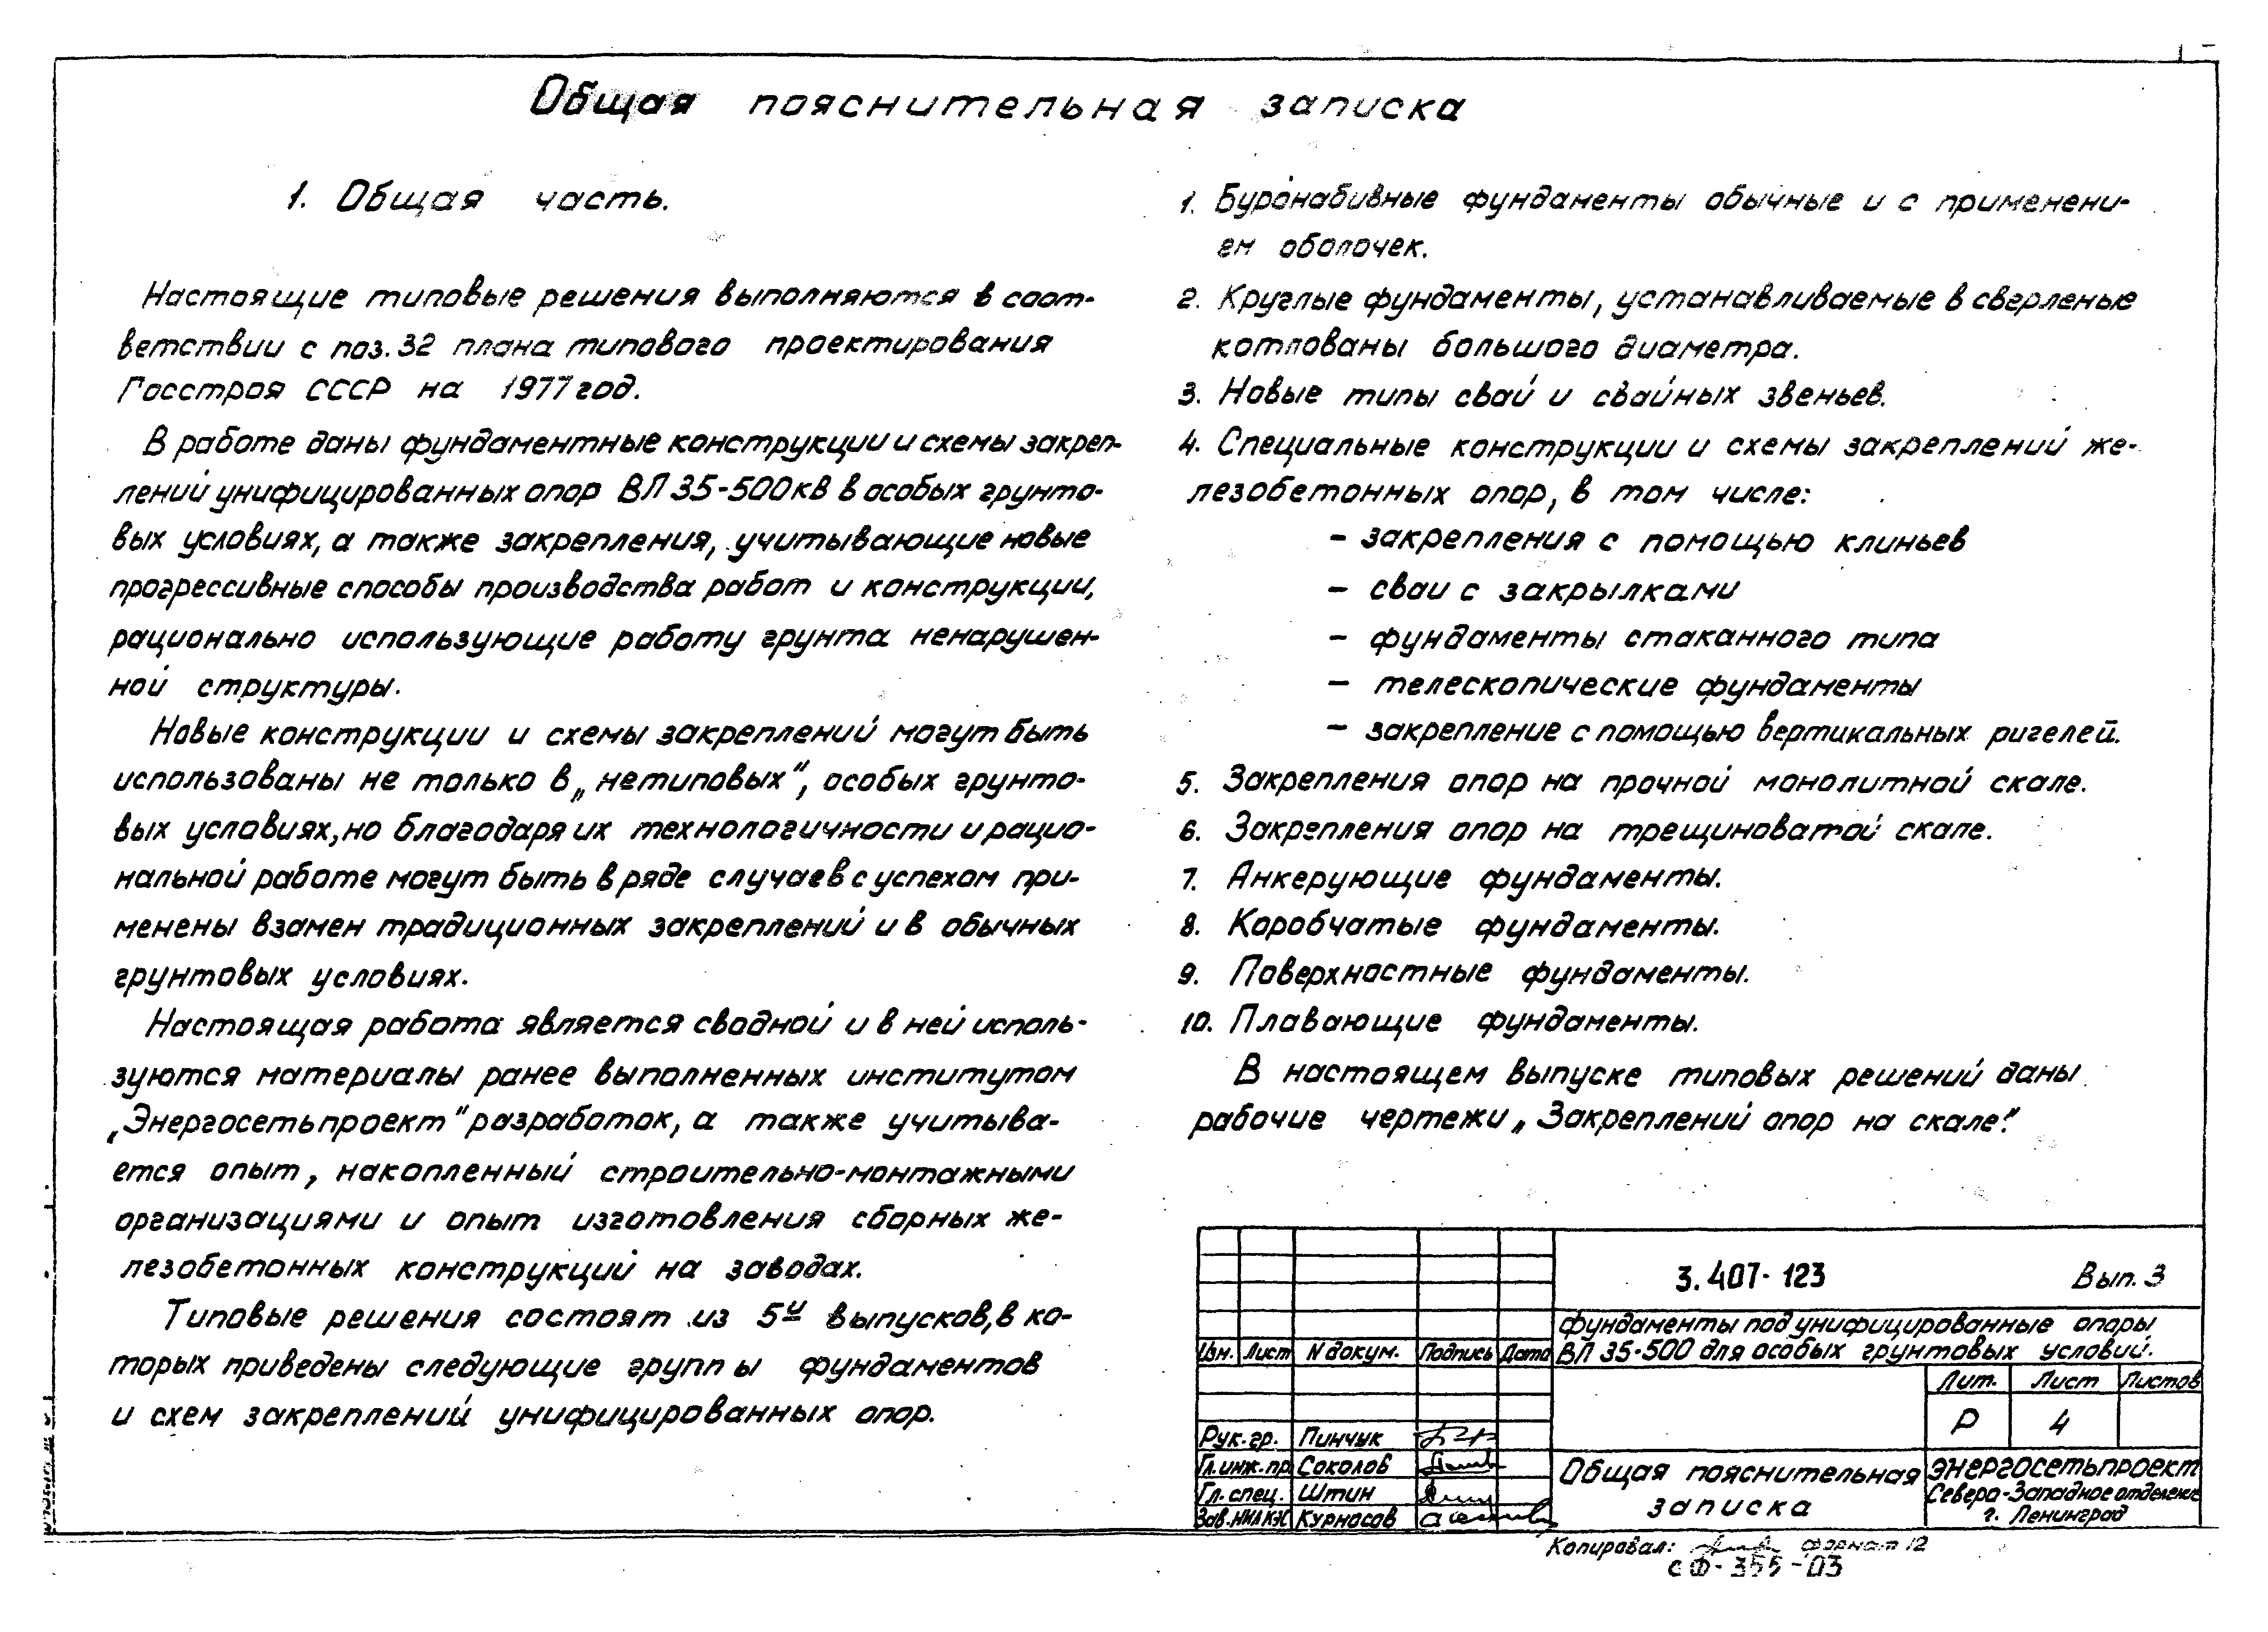 Общая пояснительная записка
1. Общая часть.
Настоящие типовые решения выполняются в соот-
ветствии с поз. 32 плана типового проектирования
Госстроя СССР на 1977 год.
В работе даны фундаментные конструкции и схемы закреп-
лений унифицированных опор ВЛ 35-500 кВ в особых грунто-
вых условиях, а также закрепления, учитывающие новые
прогрессивные способы производства работ и конструкции,
рационально использующие работу грунта ненарушен-
ной структуры.
Новые конструкции и схемы закреплений могут быть
использованы не только в „нетиповых", особых грунто-
вых условиях, но благодаря их технологичности и рацио-
нальной работе могут быть в ряде случаев с успехом при-
менены взамен традиционных закреплений и в обычных
грунтовых условиях.
Настоящая работа является сводной и в ней исполь-
зуются материалы ранее выполненных институтом
„Энергосетьпроект" разработок, а также учитыва-
ется опыт, накопленный строительно-монтажными
организациями и опыт изготовления сборных же-
лезобетонных конструкций на заводах.
Типовые решения состоят из 5и выпусков, в ко-
торых приведены следующие группы фундаментов
и схем закреплений унифицированных опор.
1. Буронабивные фундаменты обычные и с применени-
ем оболочек.
2. Круглые фундаменты, устанавливаемые в сверленые
котлованы большого диаметра.
3. Новые типы свай и свайных звеньев.
4. Специальные конструкции и схемы закреплений же-
лезобетонных опор, в том числе:
- закрепления с помощью клиньев
- сваи с закрылками
- фундаменты стаканного типа
- телескопические фундаменты
- закрепление с помощью вертикальных ригелей.
5. Закрепления опор на прочной монолитной скале.
6. Закрепления опор на трещиноватой скале.
7. Анкерующие фундаменты.
8. Коробчатые фундаменты.
9. Поверхностные фундаменты.
10. Плавающие фундаменты.
В настоящем выпуске типовых решений даны
рабочие чертежи „Закреплений опор на скале".
3.407-123 Вып. 3
Фундаменты под унифицированные опоры
ВЛ 35-500 для особых грунтовых условий.
Изм. Лист N докум. Подпись Дата
Лит. Лист Листов
Р 4
Рук. гр. Пинчук
Гл. инж. пр Соколов
Гл. спец. Штин
Зав. НИЛКЭС Курносов
Общая пояснительная
записка
Энергосетьпроект
Северо-Западное отделение
г. Ленинград
Копировал: формат 12
СФ-355-03